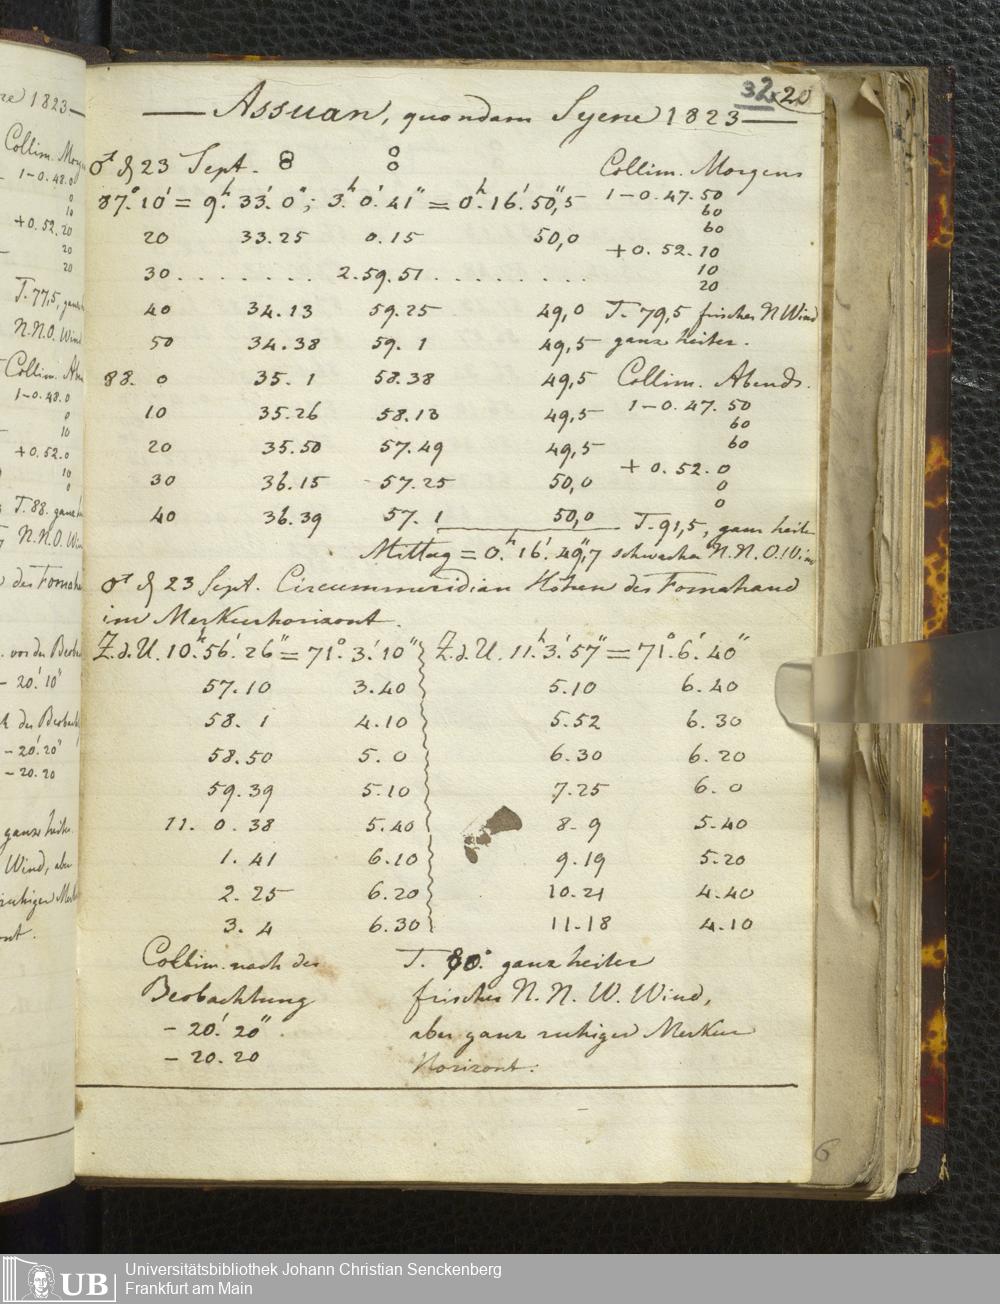 Assuan, quondam Syene 1823
32 20
♂ d 23 Sept. 8 8 Collim. Morgens
87°. 10' = 9h. 33'. 0"; 3h. 0'. 41" = 0h. 16'. 50",5 1-0.47.50
60
20 33.25 0.15 50,0 60
+0.52.10
30 . . . . . . . 2.59.51 . . . . . . . . 10
20
40 34.13 59.25 49,0 T. 79,5 frischer N Wind
50 34.38 59. 1 49,5 ganz heiter.
88. 0 35. 1 58.38 49,5 Collim. Abends.
10 35.26 58.13 49,5 1-0.47.50
60
20 35.50 57.49 49,5 60
+0.52.0
30 36.15 57.25 50,0 0
0
40 36.39 57. 1 50,0 T. 91,5, ganz heiter
Mittag = 0h. 16'. 49",7 schwacher N.N.O. Wind
♂ d 23 Sept. Circummeridian Höhen des Fomahand
im Merkurhorizont.
Z.d.U. 10h. 56'. 26" = 71°. 3'. 10" Z.d.U. 11h. 3'. 57" = 71°. 6'. 40"
57.10 3.40 5.10 6.40
58. 1 4.10 5.52 6.30
58.50 5. 0 6.30 6.20
59.39 5.10 7.25 6. 0
11. 0.38 5.40 8. 9 5.40
1.41 6.10 9.19 5.20
2.25 6.20 10.21 4.40
3. 4 6.30 11.18 4.10
Collim. nach der T. 80°. ganz heiter
Beobachtung frischer N.N.W. Wind,
- 20'. 20". aber ganz ruhiger Merkur
- 20.20 Horizont.
6
1823
Collim. Morg
1-0.48.0
0
10
+0.52.20
20
20
T. 77,5, ganz
N.N.O. Wind
Collim. Ab
1-0.48.0
0
10
+0.52.0
10
0
T. 88. ganz
N.N.O. Wi
des Fomaha
vor der Beob
- 20'. 10"
der Beobacht
- 20'. 20"
- 20.20
ganz heiter
Wind, aber
ruhiger Me
UB
Universitätsbibliothek Johann Christian Senckenberg
Frankfurt am Main